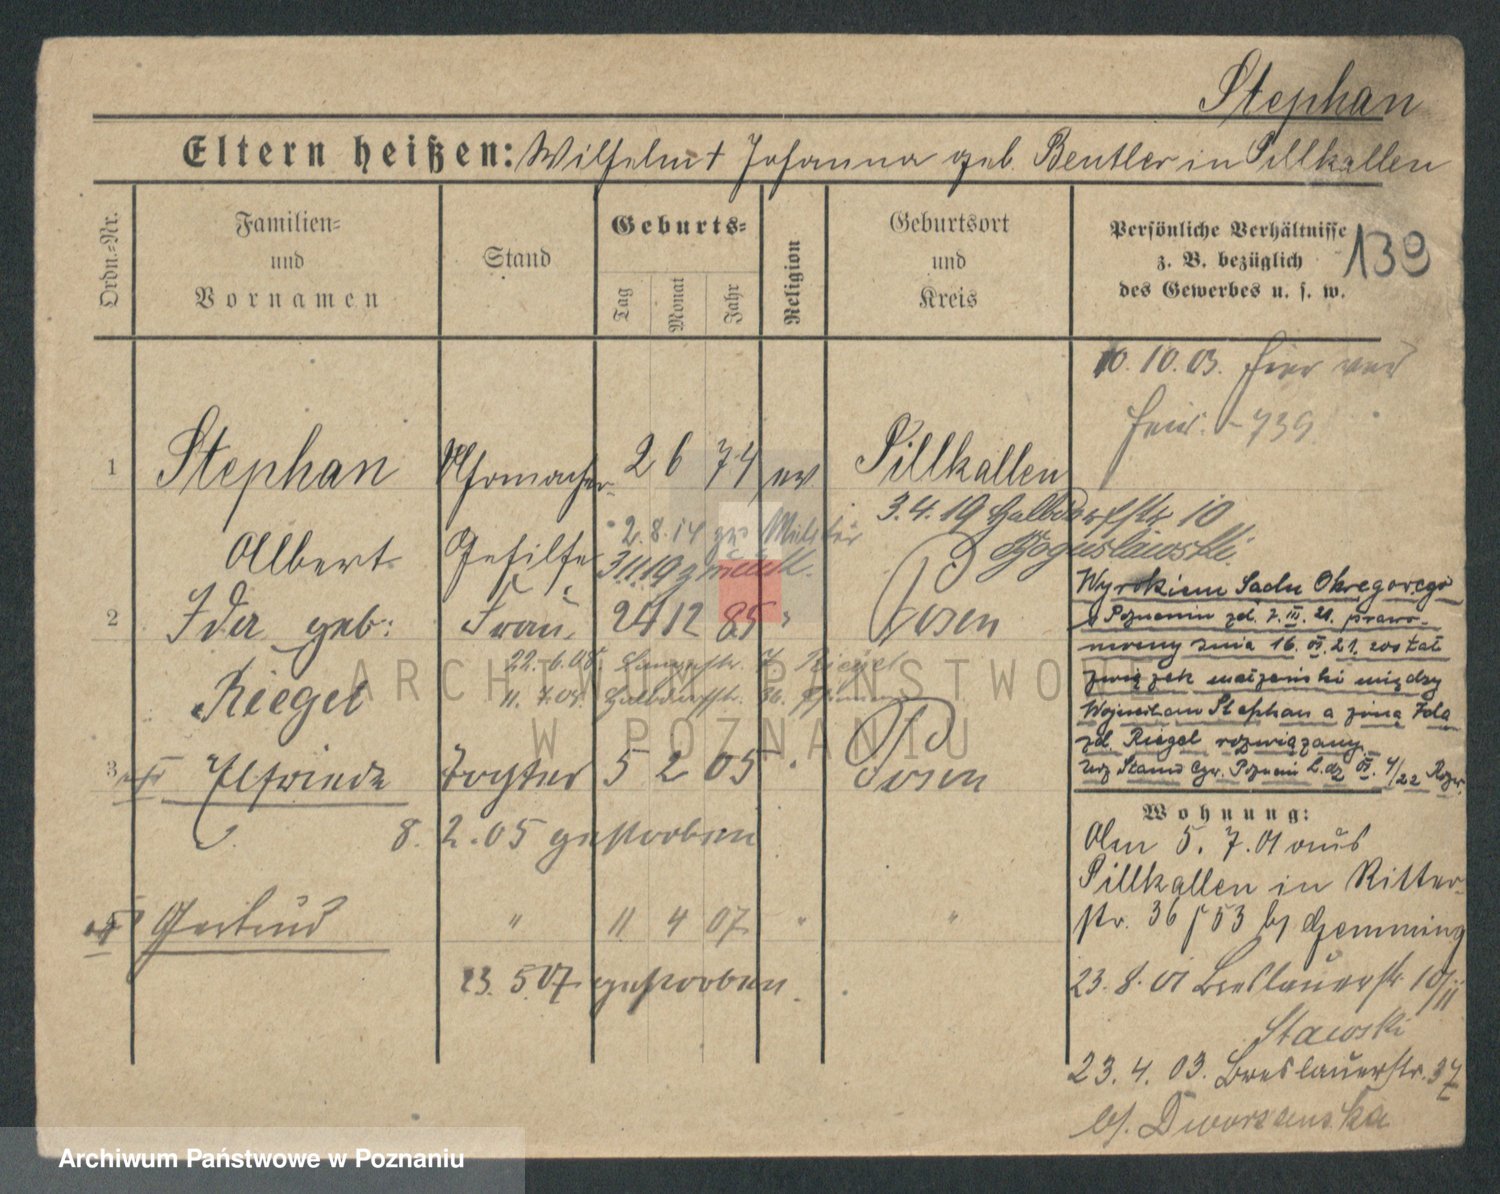 Stephan
Eltern heißen: Wilhelm † Johanna geb. Beutler in Pillkallen
Ordn.-Nr.
Familien- und Vornamen
Stand
Geburts-
Tag
Monat
Jahr
Religion
Geburtsort und Kreis
Persönliche Verhältnisse
z. B. bezüglich
des Gewerbes u. s. w.
139
10.10.03. hier
739
1 Stephan Uhrmacher- 2 6 74 ev Pillkallen
3.4.19 Halbdorfstr 10
Boguslawski
Albert Gehilfe
2.8.14 zu Militär
3.11.19 zurück.
Wyrokiem Sądu Okręgowego
w Poznaniu zd. 7.III.21. prawo-
mocny dnia 16.VI.21. został
związek małżeński między
Wojciechem Stephan a żoną Ida
zd. Riegel rozwiązany
Urz Stanu Cyw. Poznań L.dz VI. 4/22
2 Ida geb: Frau 24 12 85 " Posen
22.6.08. Langestr. 7. Riegel
Riegel
11.7.08. Halbdorfstr. 36.
3 Elfriede Tochter 5 2 05 " Posen
8. 2. 05 gestorben
Wohnung:
Den 5. 7. 01 aus
Pillkallen in Ritter-
str. 36 b/ Gemming
Gertrud " 11 4 07 " "
23. 5 07 gestorben.
23. 8. 01 Breslauerstr 10/II
Stawski
23. 4. 03. Breslauerstr. 37
b/. Dworzanska
ARCHIWUM PAŃSTWOWE
W POZNANIU
Archiwum Państwowe w Poznaniu